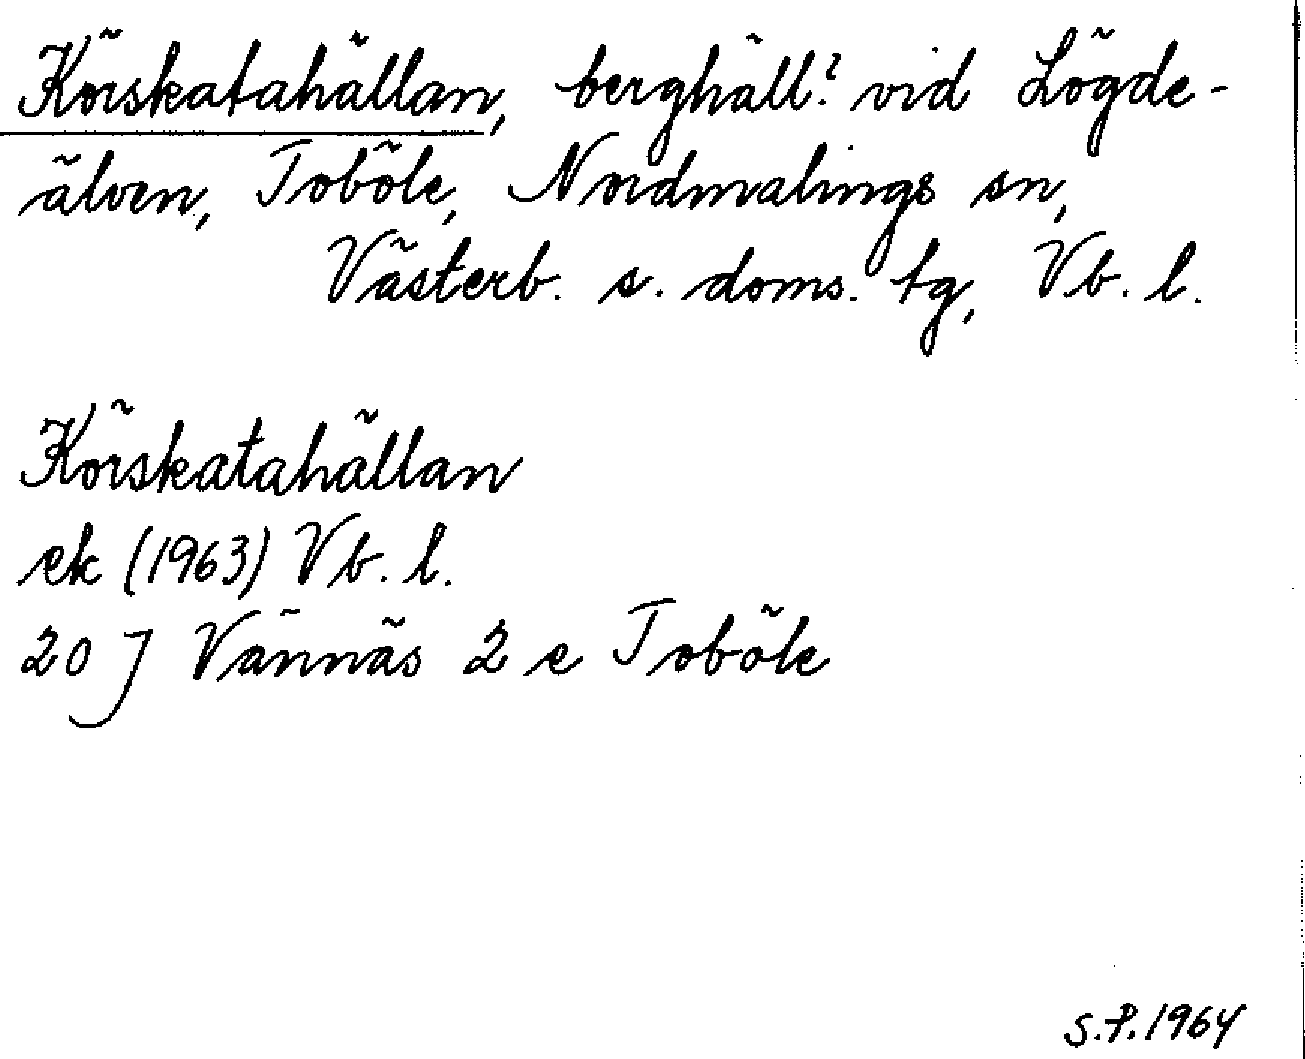 Körskatahällan, berghäll? vid Lögde-
älven, Toböle, Nordmalings sn,
Västerb. s. doms. tg, Vb. l.
Körskatahällan
ek (1963) Vb. l.
20 J Vännäs 2 e Toböle
S.P. 1964